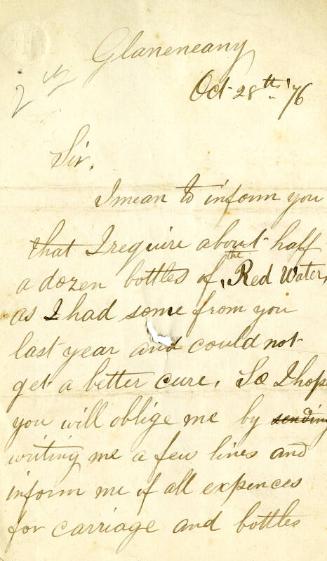 2nd Glaneneany
Oct 28th '76
Sir.
I mean to inform you
that I require about half
a dozen bottles of the Red Water,
as I had some from you
last year and could not
get a better cure. So I hope
you will oblige me by sending
writing me a few lines and
inform me if all expences
for carriage and bottles